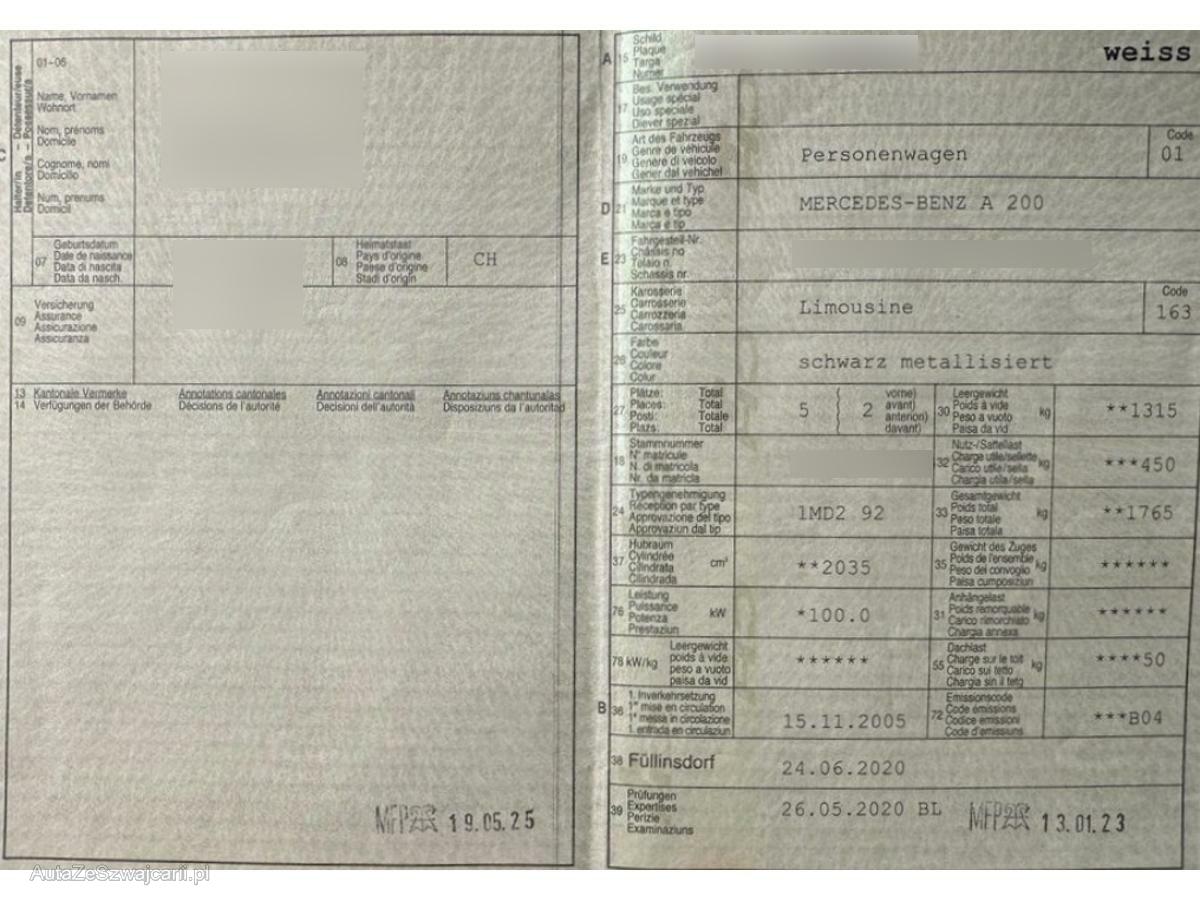 Halter/in – Détenteur/euse
Detentore/a – Possessur/a
01-06
Name, Vornamen
Wohnort
Nom, prénoms
Domicile
Cognome, nomi
Domicilio
Num, prenums
Domicil
07 Geburtsdatum
Date de naissance
Data di nascita
Data da nasch.
08 Heimatstaat
Pays d'origine
Paese d'origine
Stadi d'origin
CH
09 Versicherung
Assurance
Assicurazione
Assicuranza
13 Kantonale Vermerke Annotations cantonales Annotazioni cantonali Annotaziuns chantunalas
14 Verfügungen der Behörde Décisions de l'autorité Decisioni dell'autorità Disposiziuns da l'autoritad
19.05.25
A 15 Schild
Plaque
Targa
Numer
weiss
17 Bes. Verwendung
Usage spécial
Uso speciale
Diever spezial
19 Art des Fahrzeugs
Genre de véhicule
Genere di veicolo
Gener dal vehichel
Personenwagen
Code
01
D 21 Marke und Typ
Marque et type
Marca e tipo
Marca e tip
MERCEDES-BENZ A 200
E 23 Fahrgestell-Nr.
Châssis no
Telaio n.
Schassis nr.
25 Karosserie
Carrosserie
Carrozzeria
Carossaria
Limousine
Code
163
26 Farbe
Couleur
Colore
Colur
schwarz metallisiert
27 Plätze: Total
Places: Total
Posti: Totale
Plazs: Total
5 ( 2 vorne)
avant)
anteriori)
davant)
30 Leergewicht
Poids à vide
Peso a vuoto
Paisa da vid
kg
**1315
18 Stammnummer
N° matricule
N. di matricola
Nr. da matricla
32 Nutz-/Sattellast
Charge utile/sellette
Carico utile/sella
Chargia utila/sella
kg
***450
24 Typengenehmigung
Réception par type
Approvazione del tipo
Approvaziun dal tip
1MD2 92
33 Gesamtgewicht
Poids total
Peso totale
Paisa totala
kg
**1765
37 Hubraum
Cylindrée
Cilindrata
Cilindrada
cm³
**2035
35 Gewicht des Zuges
Poids de l'ensemble
Peso del convoglio
Paisa cumposiziun
kg
******
76 Leistung
Puissance
Potenza
Prestaziun
kW
*100.0
31 Anhängelast
Poids remorquable
Carico rimorchiato
Chargia annexa
kg
******
78 kW/kg Leergewicht
poids à vide
peso a vuoto
paisa da vid
******
55 Dachlast
Charge sur le toit
Carico sul tetto
Chargia sin il tetg
kg
****50
B 36 1. Inverkehrsetzung
1re mise en circulation
1a messa in circolazione
1. entrada en circulaziun
15.11.2005
72 Emissionscode
Code émissions
Codice emissioni
Code d'emissiuns
***B04
38 Füllinsdorf
24.06.2020
39 Prüfungen
Expertises
Perizie
Examinaziuns
26.05.2020 BL
13.01.23
AutaZeSzwajcarii.pl